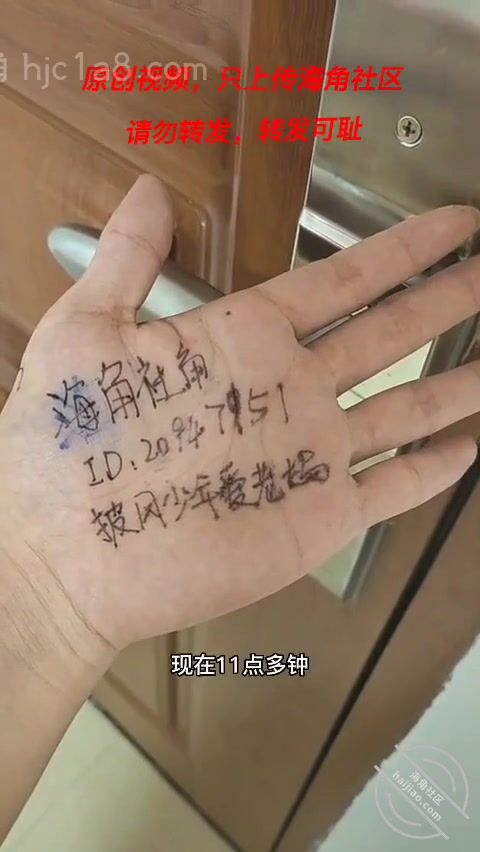 角 hjc1a8.com
原创视频，只上传海角社区
请勿转发，转发可耻
海角社角
ID:20947151
披风少年爱老妈
现在11点多钟
海角社区
haijiao.com